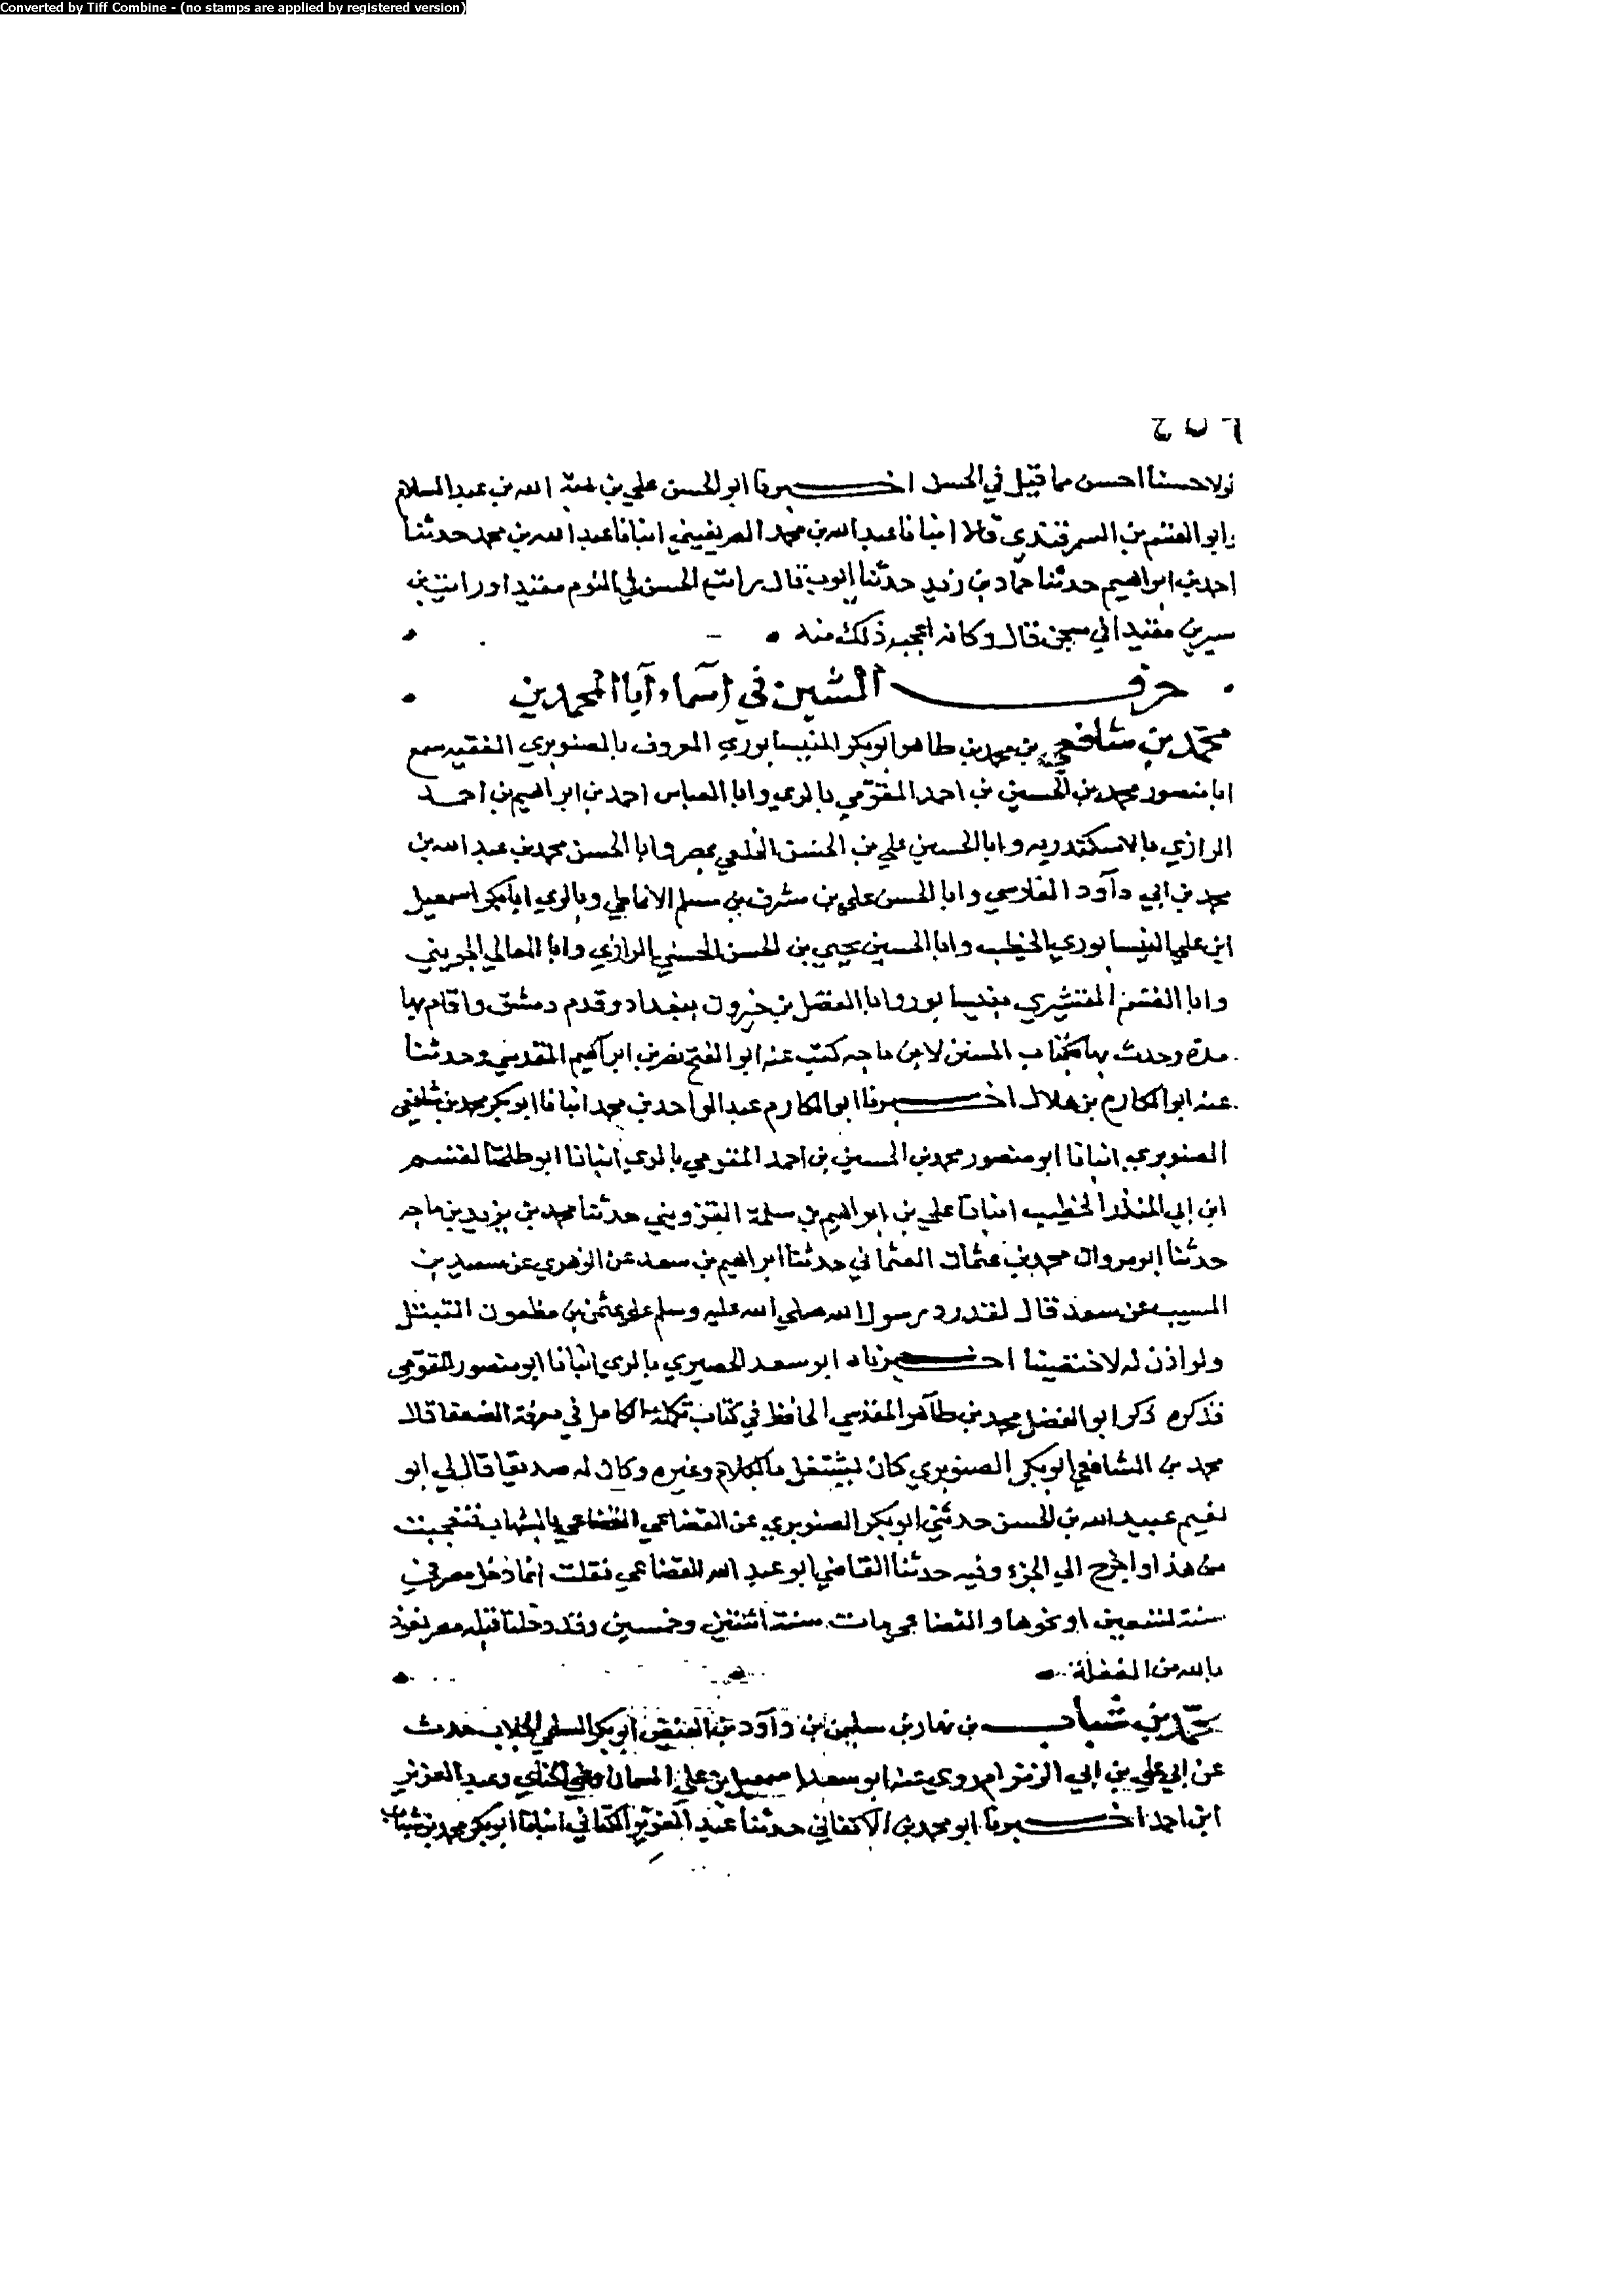 Converted by Tiff Combine - (no stamps are applied by registered version)
ولا حسنا احسن مما قيل في الحسن اخـــــبرنا ابو الحسن علي بن هبة الله بن عبد السلام
وابو القسم بن السمرقندي قالا انبانا عبد الله بن محمد الصريفيني انبانا عبد الله بن محمد حدثنا
احمد بن ابراهيم حدثنا حماد بن زيد حدثنا ايوب قال رايت الحسن في النوم مقيدا ورايت بن
سيرين مقيدا في سجن قال وكانه اعجبه ذلك منه
حرف الشين في اسماء آبا المحمدين
محمد بن شافعي بن محمد بن طاهر ابو بكر النيسابوري المعروف بالصنوبري الفقيه سمع
ابا منصور محمد بن الحسين بن احمد المقومي بالري وابا العباس احمد بن ابراهيم بن احمد
الرازي بالاسكندريه وابا الحسن علي بن الحسن الخلعي بمصر وابا الحسن محمد بن عبد الله بن
محمد بن ابي داود الفارسي وابا الحسن علي بن مشرف بن مسلم الانماطي وبالري ابا بكر اسمعيل
ابن علي النيسابوري الخطيب وابا الحسين يحيي بن الحسن الحسني الرازي وابا المعالي الجويني
وابا القسم القشيري بنيسابور وابا الفضل بن خيرون ببغداد وقدم دمشق واقام بها
مدة وحدث بها بكتاب السنن لابن ماجه كتب عنه ابو الفتح نصر بن ابراهيم المقدسي وحدثنا
عنه ابو المكارم بن هلال اخـــــبرنا ابو المكارم عبد الواحد بن محمد انبانا ابو بكر محمد بن شافعي
الصنوبري انبانا ابو منصور محمد بن الحسين بن احمد المقومي بالري انبانا ابو طلحة القسم
ابن ابي المنذر الخطيب انبانا علي بن ابراهيم بن سلمة القزويني حدثنا محمد بن يزيد بن ماجه
حدثنا ابو مروان محمد بن عثمان العثماني حدثنا ابراهيم بن سعد عن الزهري عن سعيد بن
المسيب عن سعد قال لقد رد رسول الله صلي الله عليه وسلم علي عثمن بن مظعون التبتل
ولو اذن له لاختصينا اخـــــبرناه ابو سعد الحصيري بالري انبانا ابو منصور المقومي
فذكره ذكر ابو الفضل محمد بن طاهر المقدسي الحافظ في كتاب تكملة الكامل في معرفة الضعفا قال
محمد بن الشافعي ابو بكر الصنوبري كان يشتغل بالكلام وغيره وكان له صديقا قال لي ابو
نعيم عبيد الله بن الحسن حدثني ابو بكر الصنوبري عن القضاعي القضاعي بالشهاب فتعجبت
من هذا واخرج الي الجزء وفيه حدثنا القاضي ابو عبد الله القضاعي فقلت انما دخل مصر في
سنة تسعين او نحوها والقضاعي مات سنة اثنتين وخمسين وقد دخلنا قبله مصر نعوذ
بالله من الغفلة
محمد بن شباب بن نهار بن سليمن بن داود بن الفيض ابو بكر السلمي الجلاب حدث
عن ابي علي بن ابي الزمزام روي عنه ابو سعد اسمعيل بن علي السمان وعبد العزيز
ابن احمد اخـــــبرنا ابو محمد بن الاكفاني حدثنا عبد العزيز الكتاني انبانا ابو بكر محمد بن شباب